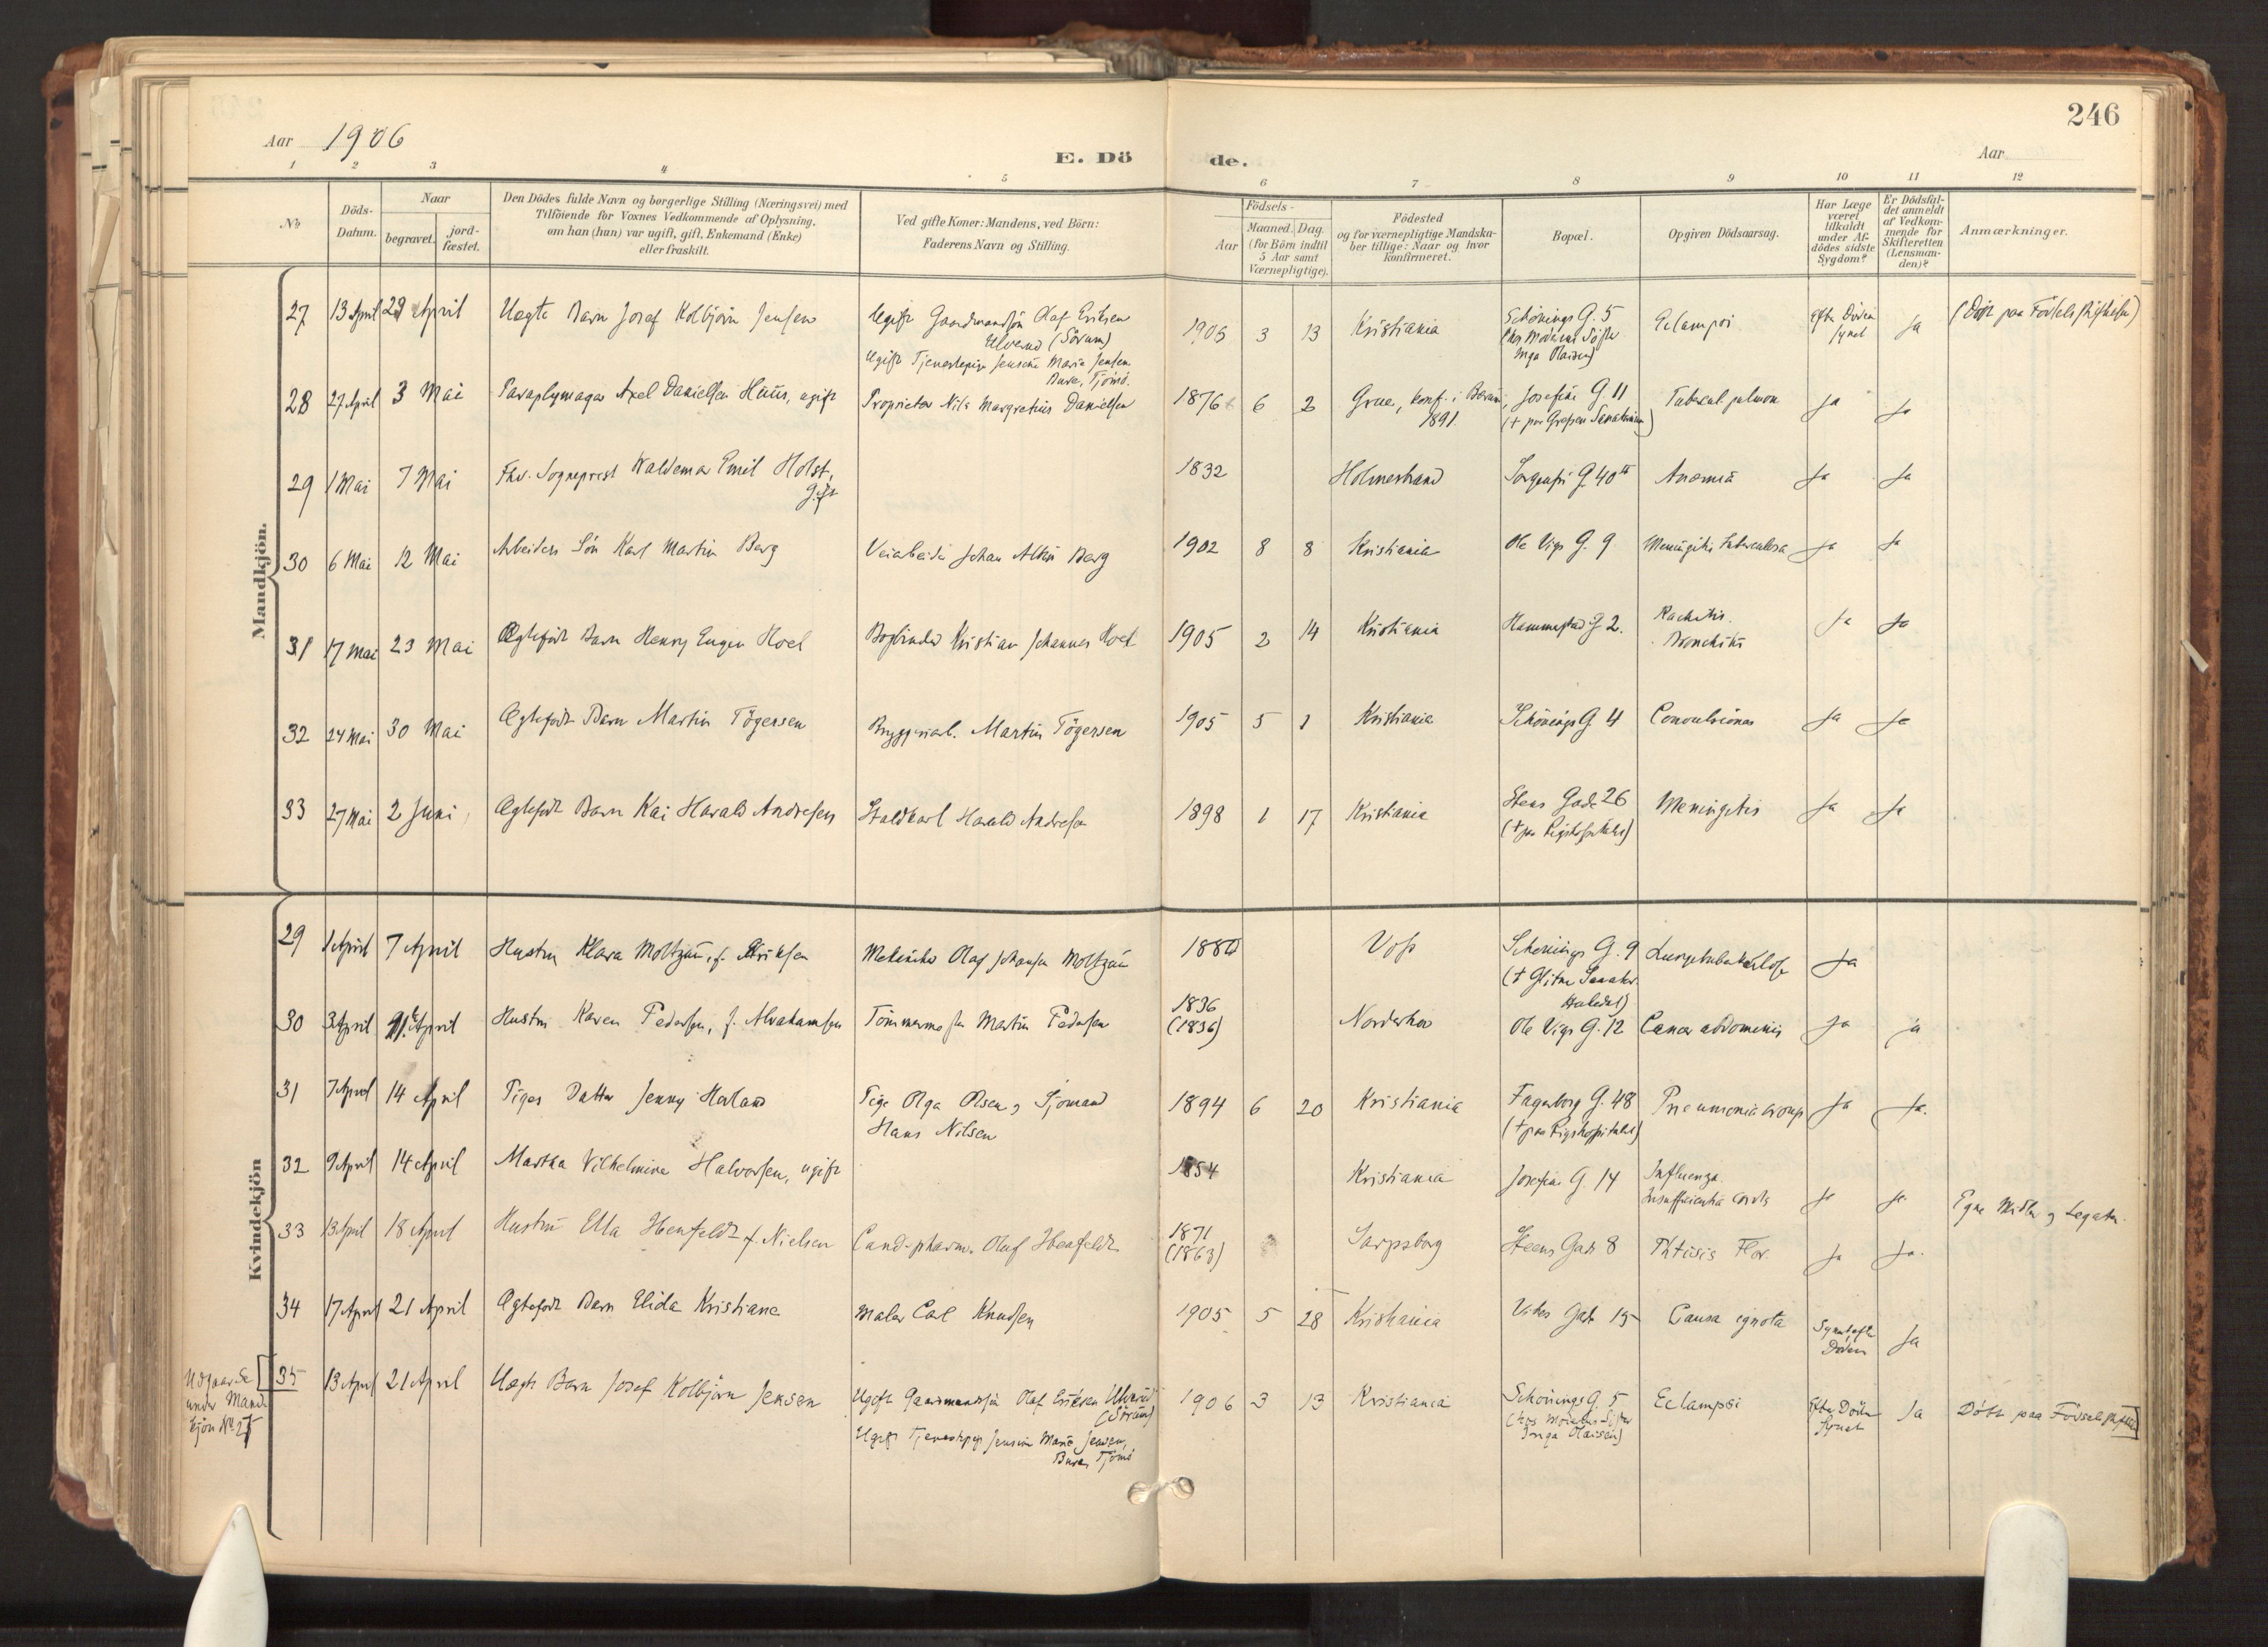 246
Aar 1906
E. Dö de.
Aar
1 2 3 4 5 6 7 8 9 10 11 12
No
Döds-Datum.
Naar begravet. jord-fæstet.
Den Dödes fulde Navn og borgerlige Stilling (Næringsvei) med
Tilföiende for Voxnes Vedkommende af Oplysning,
om han (hun) var ugift, gift, Enkemand (Enke)
eller fraskilt.
Ved gifte Koner: Mandens, ved Börn:
Faderens Navn og Stilling.
Födsels-
Aar Maaned. Dag.
(for Börn indtil
5 Aar samt
Værnepligtige).
Födested
og for værnepligtige Mandska-
ber tillige: Naar og hvor
konfirmeret.
Bopæl.
Opgiven Dödsaarsag.
Har Læge
været
tilkaldt
under Af-
dödes sidste
Sygdom?
Er Dödsfal-
det anmeldt
af Vedkom-
mende for
Skifteretten
(Lensman-
den)?
Anmærkninger.
Mandkjön.
27 13 April 23 April Uegte Barn Josef Kolbjörn Jensen Ugift Gaardmandssön Olaf Eriksen 1906 3 13 Kristiania Schönings G. 5 Eclampsi Efter Döden ja
(Sörum) (hos Moderens Söster synet
Ugift Tjenestepige Jensine Marie Jensen Inga Olaisen)
Bure, Tjömö.
28 27 April 3 Mai Paraplymager Axel Danielsen Huus, ugift Proprietær Nils Margretius Danielsen 1876 6 2 Grue, konf. i Bærum, Josefine G. 11 Tubercul. pulmon ja ja
1891. (+ paa Grefsen Sanatorium)
29 1 Mai 7 Mai Fhv. Sogneprest Waldemar Emil Holst, 1832 Holmestrand Sorgenfri G. 40 Anæmia Ja Ja
gift
30 6 Mai 12 Mai Arbeiders Sön Karl Martin Berg Veiarbeider Johan Berg 1902 8 8 Kristiania Ole Vigs G. 9 Meningitis tuberculosa ja Ja
31 17 Mai 23 Mai Ægtefödt Barn Henry Eugen Hoel Bogbinder Kristian Johannes Hoel 1905 2 14 Kristiania Hammerstad G 2. Rachitis. Ja Ja
Bronchitis
32 24 Mai 30 Mai Ægtefödt Barn Martin Tögersen Bryggeriarb. Martin Tögersen 1905 5 1 Kristiania Schönings G 4 Convulsiones Ja Ja
33 27 Mai 2 Juni Ægtefödt Barn Kai Harald Andresen Staldkarl Harald Andresen 1898 1 17 Kristiania Stens Gade 26 Meningitis Ja Ja
(+ paa Rigshospitalet)
Kvindekjön
29 1 April 7 April Hustru Klara Moltzau, f. Eriksen Olaf Johansen Moltzau 1880 Voss Schönings G. 9 Lungetuberkulose Ja
(+ Glitre Sanator.
30 3 April April Hustru Karen Pedersen, f. Abrahamsen Martin Pedersen 1836 Norderhov Ole Vigs G. 12 Cancer abdominis Ja ja
(1836)
31 7 April 14 April Piges Datter Jenny Harland Pige Olga Olsen og Sjömand 1894 6 20 Kristiania Fagerborg G. 48 Pneumonia croup Ja Ja.
Hans Nilsen (+ paa Rigshospitalet)
32 9 April 14 April Martha Vilhelmine Halvorsen, ugift 1854 Kristiania Josefine G. 14 Influenza. ja ja Egne Midler og Legater.
Insufficientia cordis
33 13 April 18 April Hustru Ella Ibenfeldt f. Nielsen Cand. pharm. Oluf Ibenfeldt 1871 Sarpsborg Steens Gade 8 Phtisis Flor. Ja Ja.
(1863)
34 17 April 21 April Ægtefödt Barn Elida Kristiane Maler Carl Knudsen 1905 5 28 Kristiania Vibes Gade 15 Causa ignota Synet efter Ja
Döden
Udgaar Se [35 13 April 21 April Uegte Barn Josef Kolbjörn Jensen Ugift Gaardmandssön Olaf Eriksen 1906 3 13 Kristiania Schönings G. 5 Eclampsi Efter Döden Ja Födt paa Födselsstift.]
under Mand- (Sörum) (hos Moderens Söster Synet
kjön No 27 Ugift Tjenestepige Jensine Marie Jensen, Inga Olaisen)
Bure, Tjömö